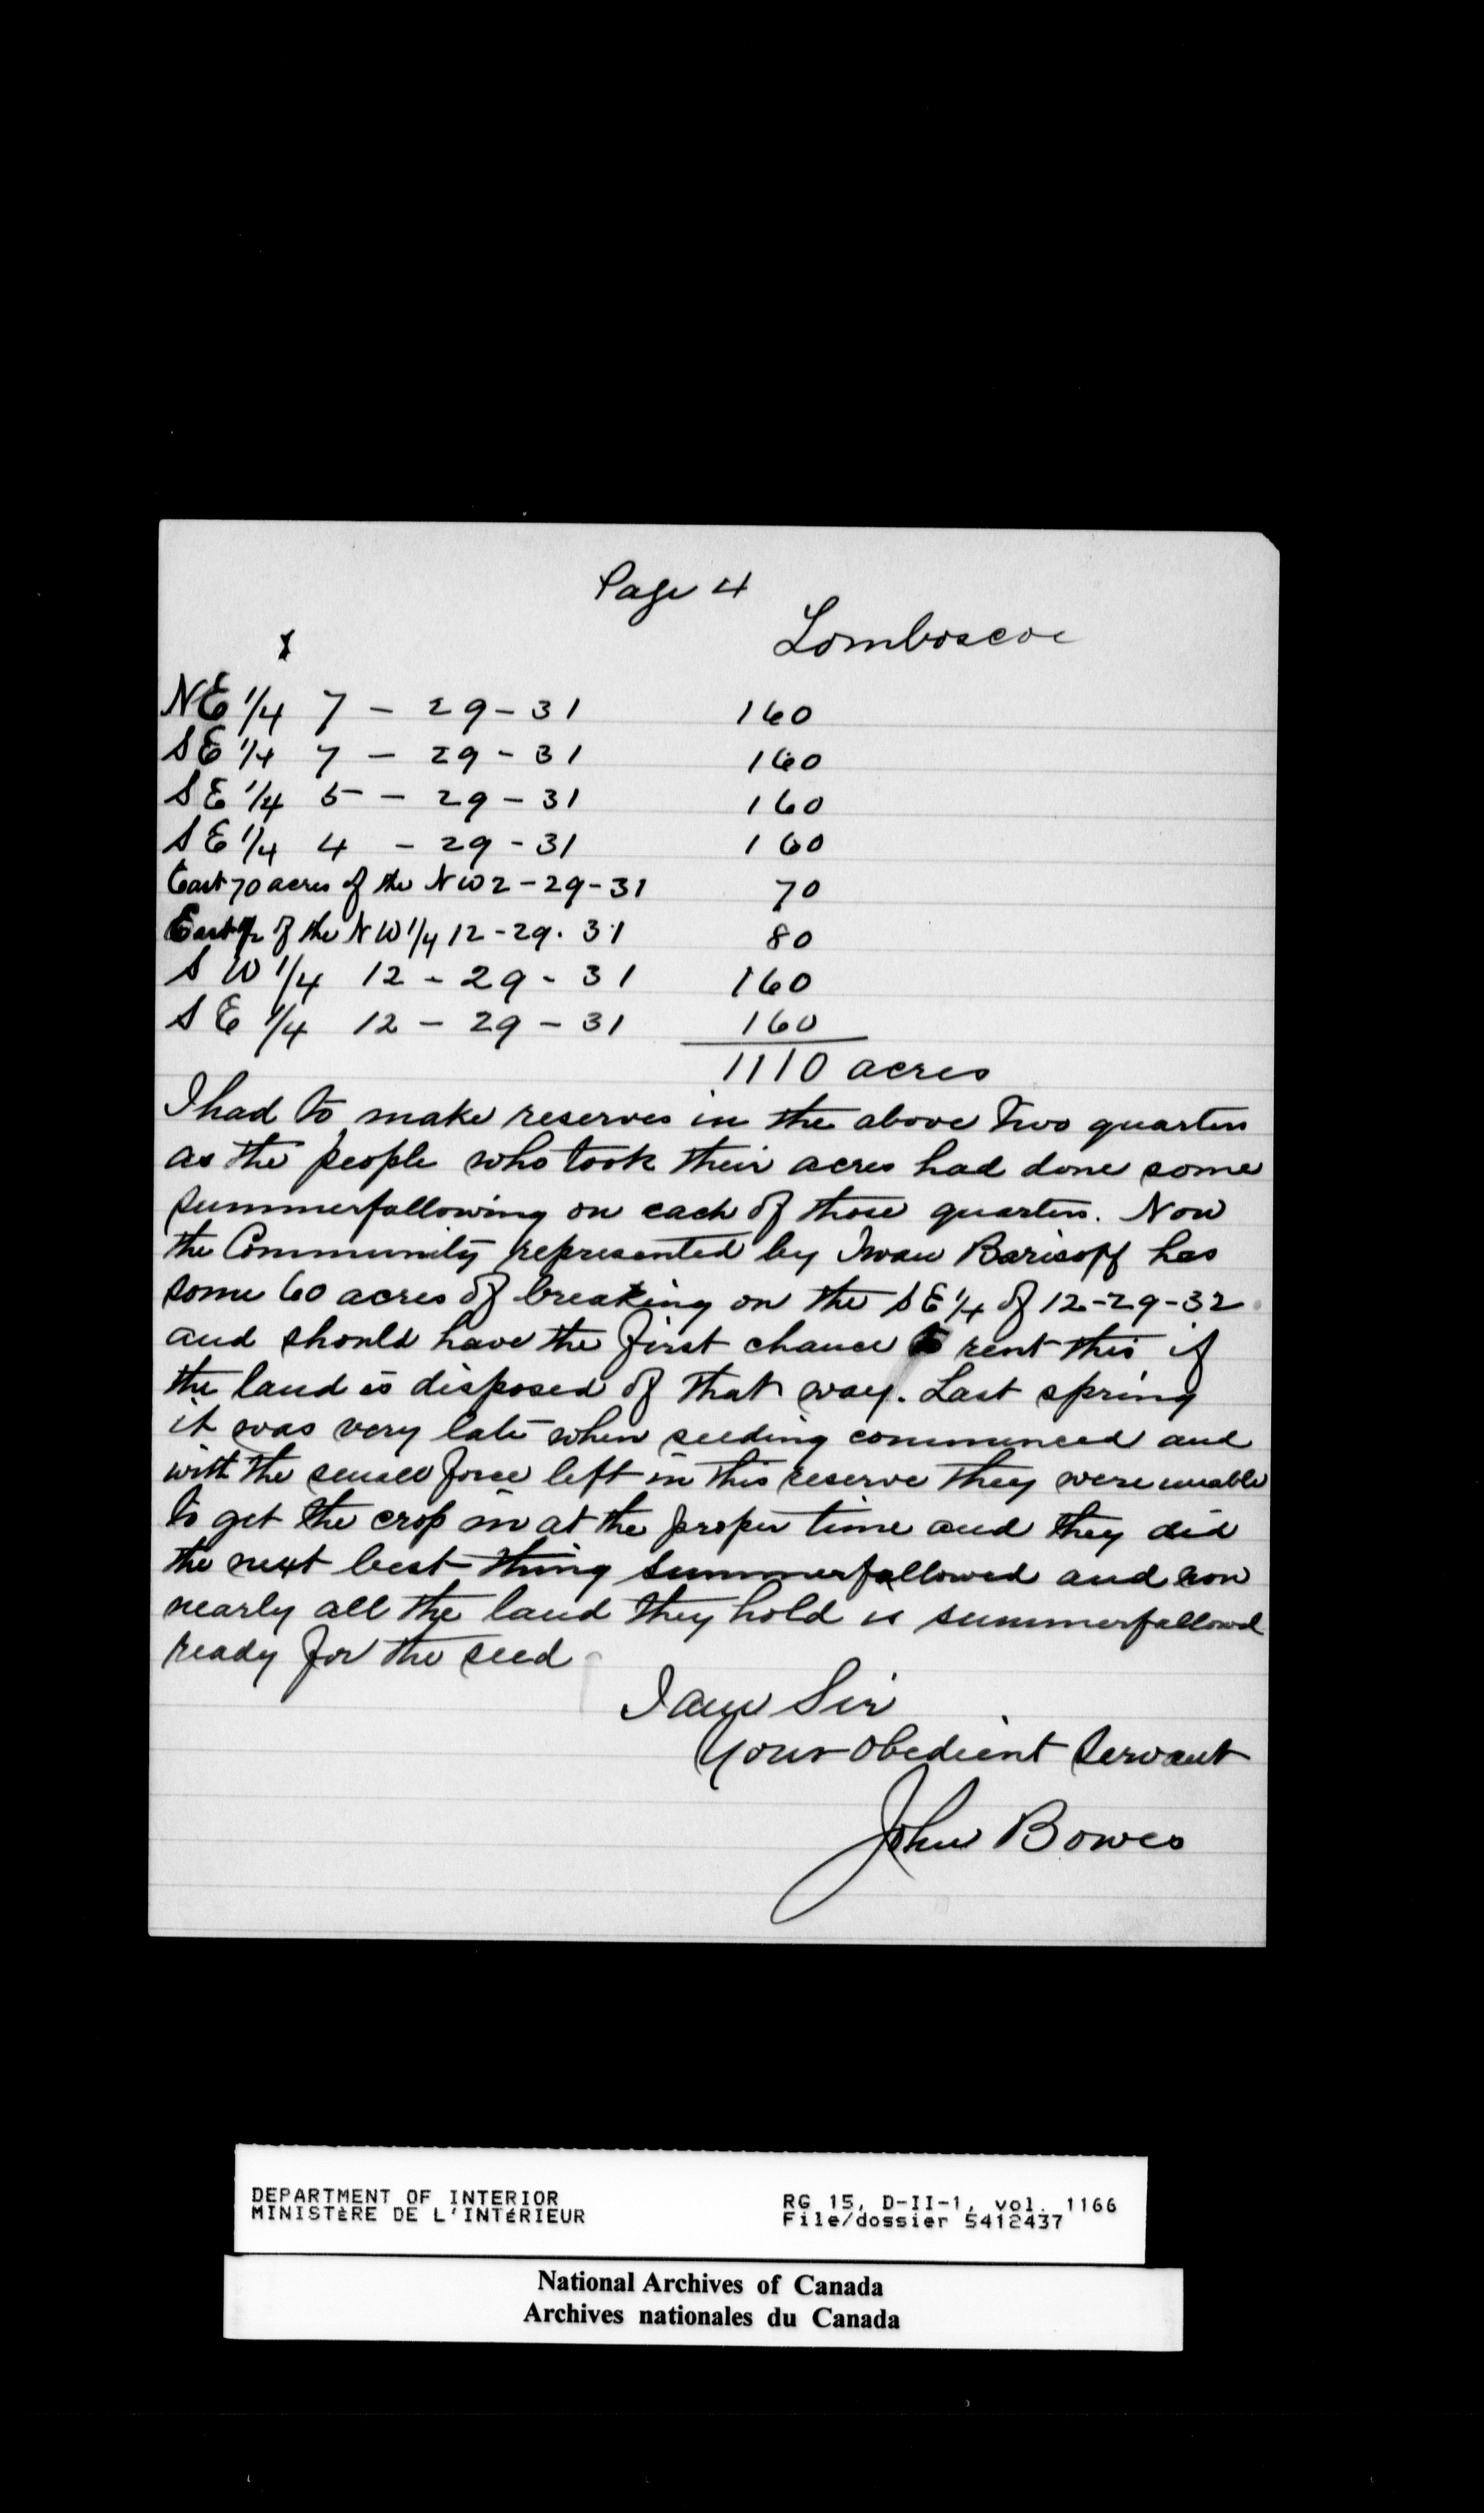 Page 4
Lomboscoe
NE 1/4 7 - 29 - 31 160
SE 1/4 7 - 29 - 31 160
SE 1/4 5 - 29 - 31 160
SE 1/4 4 - 29 - 31 160
East 70 acres of the NW 2 - 29 - 31 70
East 1/2 of the NW 1/4 12 - 29 . 31 80
SW 1/4 12 - 29 - 31 160
SE 1/4 12 - 29 - 31 160
1110 acres
I had to make reserves in the above two quarters
as the people who took their acres had done some
summerfallowing on each of those quarters. Now
the Community represented by Iwan Barisoff has
some 60 acres of breaking on the SE 1/4 of 12-29-32
and should have the first chance to rent this if
the land is disposed of that way. Last spring
it was very late when seeding commenced and
with the small force left in this reserve they were unable
to get the crop in at the proper time and they did
the next best thing summerfallowed and now
nearly all the land they hold is summerfallowd
ready for the seed
I am Sir
Your obedient Servant
John Bowes
DEPARTMENT OF INTERIOR
MINISTÈRE DE L'INTÉRIEUR
RG 15, D-II-1, vol. 1166
File/dossier 5412437
National Archives of Canada
Archives nationales du Canada